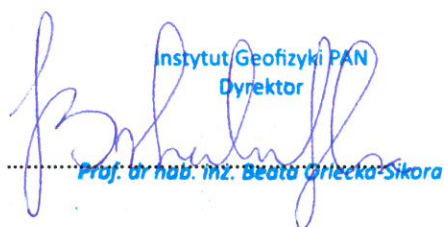 Instytut Geofizyki PAN
Dyrektor
Prof. dr hab. inż. Beata Orlecka-Sikora